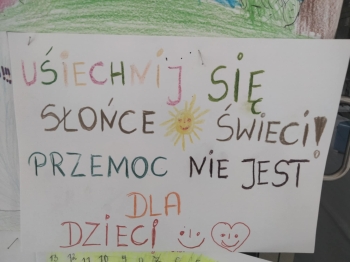 UŚIECHNIJ SIĘ
SŁOŃCE ŚWIECI!
PRZEMOC NIE JEST
DLA
DZIECI